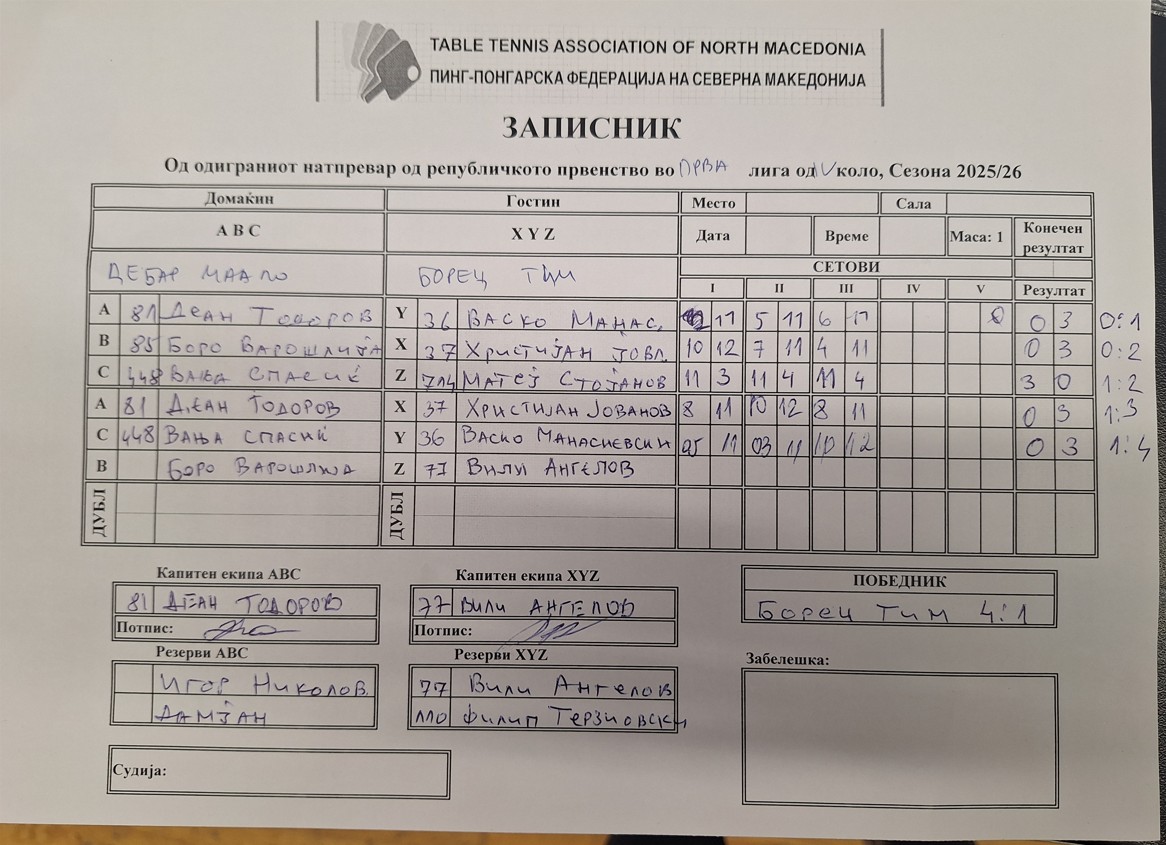 TABLE TENNIS ASSOCIATION OF NORTH MACEDONIA
ПИНГ-ПОНГАРСКА ФЕДЕРАЦИЈА НА СЕВЕРНА МАКЕДОНИЈА
ЗАПИСНИК
Од одиграниот натпревар од републичкото првенство во ПРВА лига од IV коло, Сезона 2025/26
Домаќин Гостин Место Сала
A B C X Y Z Дата Време Маса: 1 Конечен резултат
ДЕБАР МААЛО БОРЕЦ ТИМ СЕТОВИ
I II III IV V Резултат
A 81 Деан Тодоров Y 36 Васко Манас. 11 5 11 6 11 0 0 3 0:1
B 85 Боро Варошлија X 37 Христијан Јов. 10 12 7 11 4 11 0 3 0:2
C 448 Вања Спасиќ Z 714 Матеј Стојанов 11 3 11 4 11 4 3 0 1:2
A 81 Деан Тодоров X 37 Христијан Јованов 8 11 10 12 8 11 0 3 1:3
C 448 Вања Спасиќ Y 36 Васко Манасиевски 05 11 03 11 10 12 0 3 1:4
B Боро Варошлија Z 77 Вили Ангелов
ДУБЛ ДУБЛ
Капитен екипа ABC Капитен екипа XYZ ПОБЕДНИК
81 Деан Тодоров 77 Вили Ангелов Борец Тим 4:1
Потпис: Потпис:
Резерви ABC Резерви XYZ Забелешка:
Игор Николов. 77 Вили Ангелов
Дамјан 110 Филип Терзиовски
Судија: